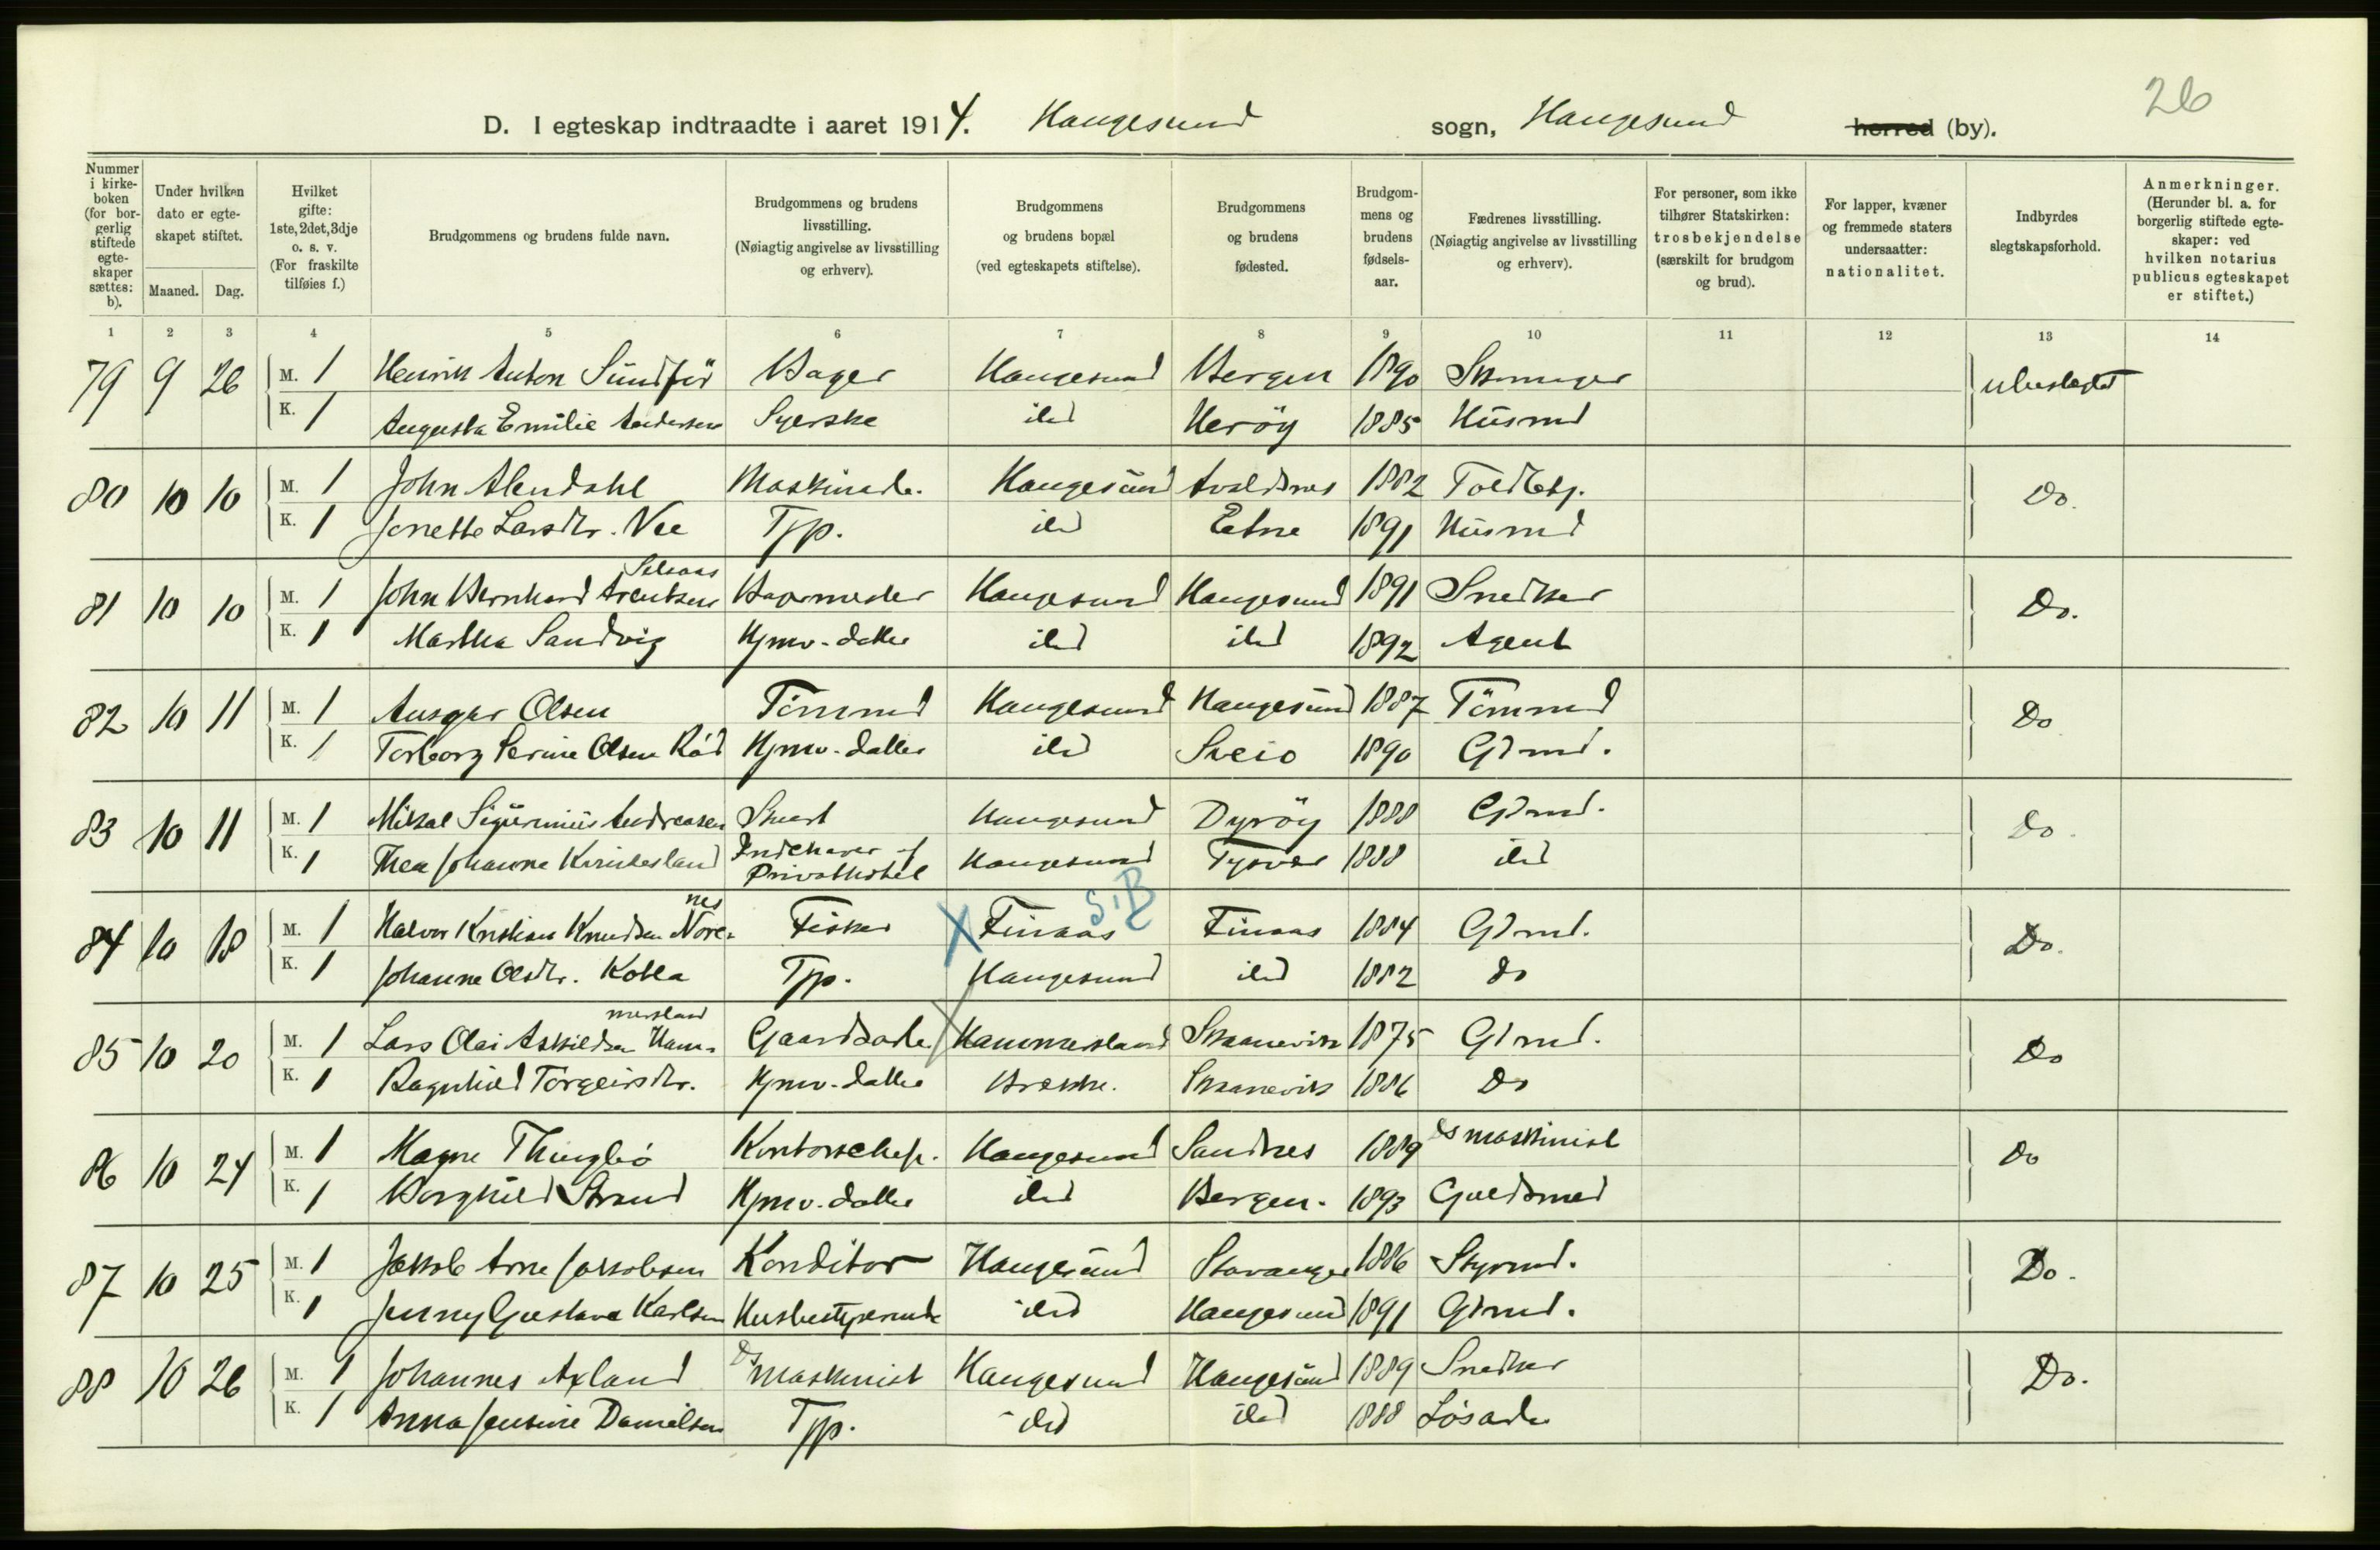 26
D. I egteskap indtraadte i aaret 1914. Haugesund sogn, Haugesund herred (by).
Nummer i kirke-boken (for bor-gerlig stiftede egte-skaper sættes: b).
Under hvilken dato er egte-skapet stiftet.
Maaned. Dag.
Hvilket gifte: 1ste, 2det, 3dje o. s. v. (For fraskilte tilføies f.)
Brudgommens og brudens fulde navn.
Brudgommens og brudens livsstilling. (Nøiagtig angivelse av livsstilling og erhverv).
Brudgommens og brudens bopæl (ved egteskapets stiftelse).
Brudgommens og brudens fødested.
Brudgom-mens og brudens fødsels-aar.
Fædrenes livsstilling. (Nøiagtig angivelse av livsstilling og erhverv).
For personer, som ikke tilhører Statskirken: trosbekjendelse (særskilt for brudgom og brud).
For lapper, kvæner og fremmede staters undersaatter: nationalitet.
Indbyrdes slegtskapsforhold.
Anmerkninger. (Herunder bl. a. for borgerlig stiftede egte-skaper: ved hvilken notarius publicus egteskapet er stiftet.)
1 2 3 4 5 6 7 8 9 10 11 12 13 14
79 9 26 M. 1 Henrik Anton Sundför Bager Haugesund Bergen 1890 ubeslegtet
K. 1 Augusta Emilie Andersen Syerske ibd Heröy 1885 Husmd
80 10 10 M. 1 John Alendahl Maskinarb. Haugesund Avaldsnes 1882 Toldbetj. Do.
K. 1 Jonette Larsdtr. Vee Tjp. ibd Etne 1891 Husmd
Selsaas
81 10 10 M. 1 John Bernhard Arentsen Bagermester Haugesund Haugesund 1891 Snedker Do.
K. 1 Martha Sandvig Hjmv. datter ibd ibd 1892 Agent
82 10 11 M. 1 Ansgar Olsen Tömmd Haugesund Haugesund 1887 Tömmd Do
K. 1 Torborg Serine Olsen Röd Hjmv. datter ibd Sveio 1890 Gdmd.
83 10 11 M. 1 Mikal Sigurinius Andreasen Stuert Haugesund Dyröy 1888 Gdmd. Do.
K. 1 Thea Johanne Kvinnesland Indehaver af Privathotel Haugesund Tysvær 1888 ibd
nes S.B
84 10 18 M. 1 Halvor Kristian Knudsen Nore- Fisker X Finaas Finaas 1884 Gdmd. Do.
K. 1 Johanne Olsdtr. Kolla Tjp. Haugesund ibd 1882 do
mersland
85 10 20 M. 1 Lars Olai Askildsen Ham- Gaardsarb. X Hammersland Skaanevik 1875 Gdmd. Do
K. 1 Ragnhild Torgeirsdtr. Hjmv. datter Brække. Skaanevik 1886 Do
86 10 24 M. 1 Magne Thingbö Kontorchef. Haugesund Sandnes 1889 Ds maskinist Do
K. 1 Borghild Strand Hjmv. datter ibd Bergen. 1893 Guldsmed
87 10 25 M. 1 Jakob Arne Jakobsen Konditor Haugesund Stavanger 1886 Styrmd. Do.
K. 1 Jenny Gustava Karlsen Husbestyrerinde ibd Haugesund 1891 Gdmd.
88 10 26 M. 1 Johannes Axland Ds maskinist Haugesund Haugesund 1889 Snedker Do.
K. 1 Anna Jensine Danielsen Tjp. ibd ibd 1888 Lösarb.